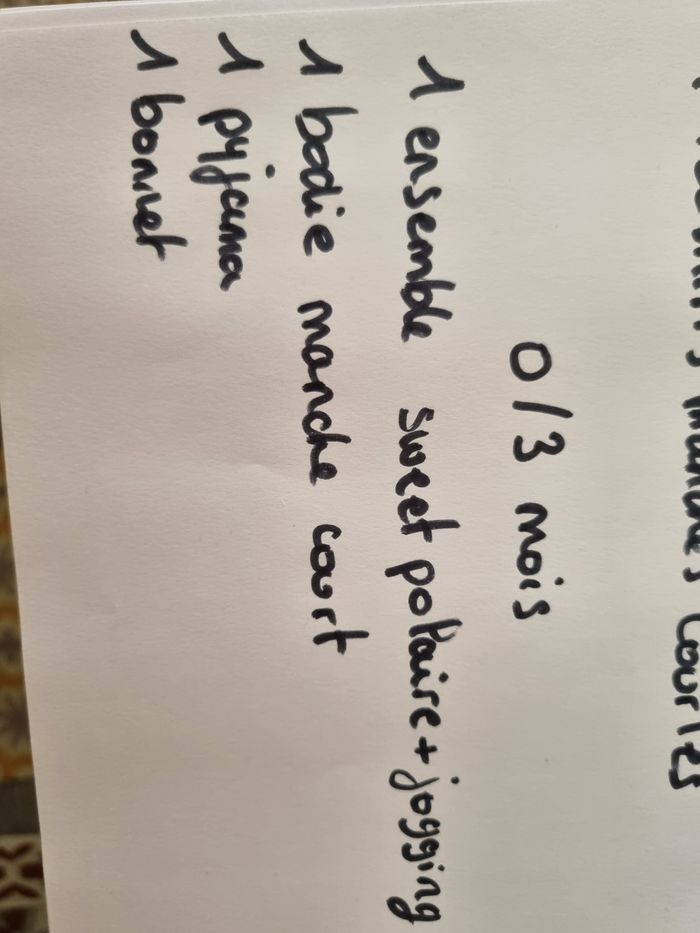 manches courtes
0/3 mois
1 ensemble sweet polaire + jogging
1 bodie manche court
1 pyjama
1 bonnet